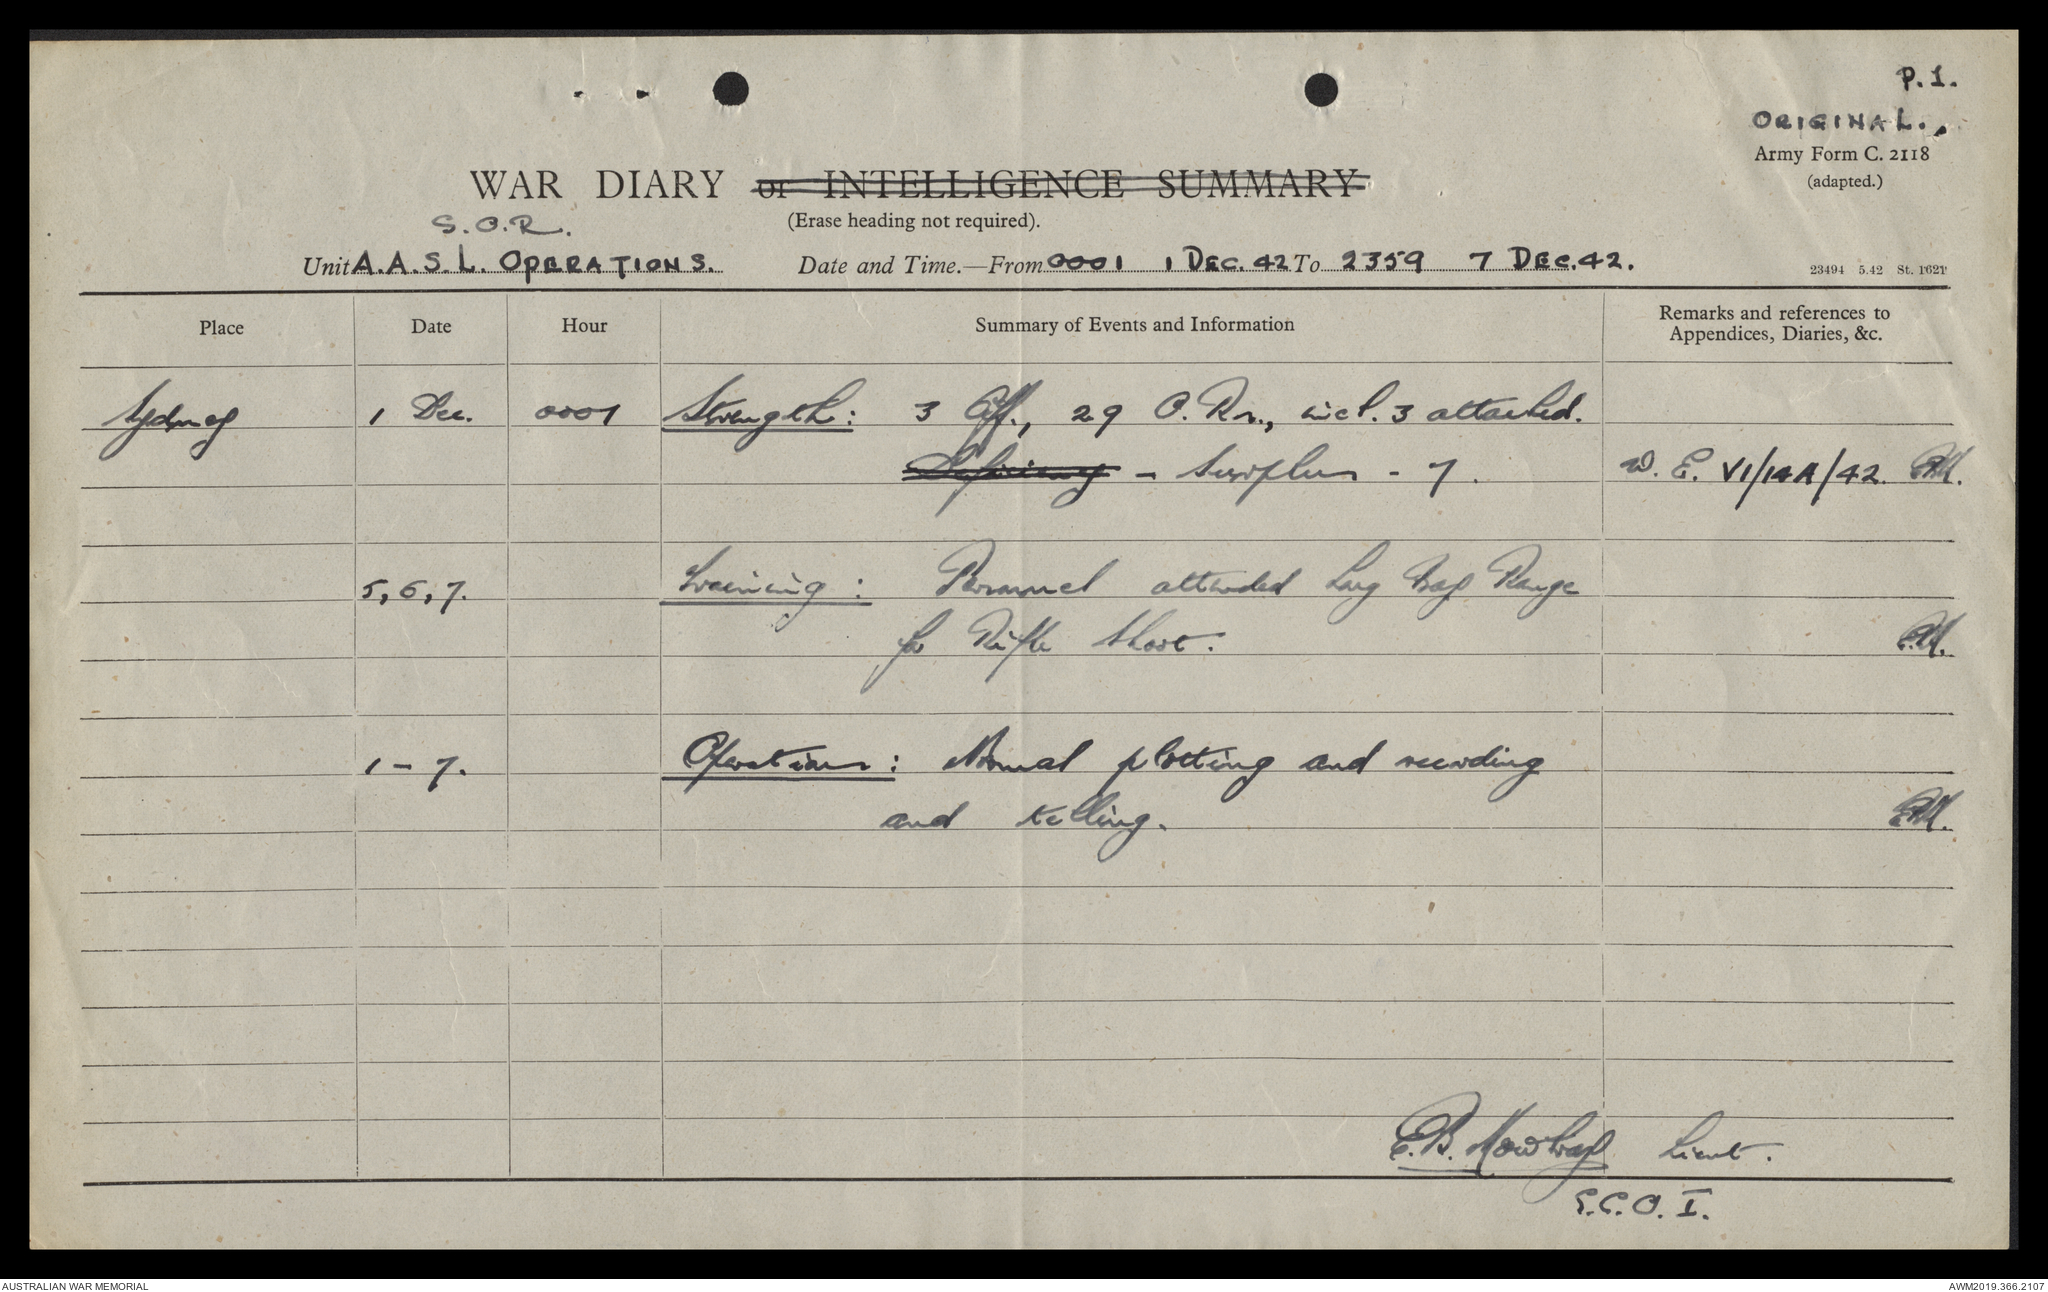 P.1.
ORIGINAL.
Army Form C. 2118
(adapted.)
WAR DIARY or INTELLIGENCE SUMMARY
(Erase heading not required).
S.O.R.
Unit A.A.S.L. OPERATIONS. Date and Time.—From 0001 1 DEC. 42 To 2359 7 DEC. 42.
23494 5.42 St. 1621
Place Date Hour Summary of Events and Information Remarks and references to
Appendices, Diaries, &c.
Sydney 1 Dec. 0001 Strength: 3 Off., 29 O.Rs., incl. 3 attached.
Deficiency - Surplus - 7. W.E. VI/14A/42. EBM.
5, 6, 7. Training: Personnel attended Long Bay Range
for Rifle Shoot. EM.
1 - 7. Operations: Normal plotting and recording
and telling. EBM.
E.B. Mowbray Lieut.
G.C.O. I.
AUSTRALIAN WAR MEMORIAL
AWM2019.366.2107